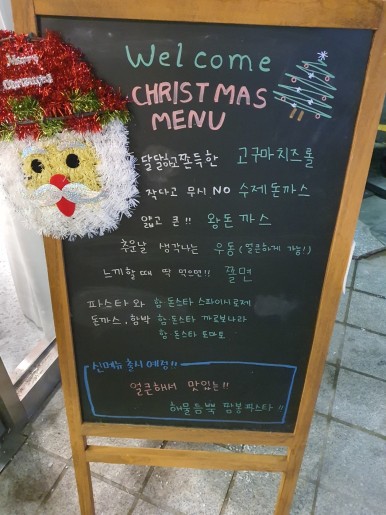 Merry
Christmas
Welcome
CHRISTMAS
MENU
달달하고쫀득한 고구마치즈롤
작다고 무시 NO 수제돈까스
얇고 큰!! 왕돈까스
추운날 생각나는 우동(얼큰하게 가능!)
느끼할때 딱 먹으면!! 쫄면
파스타와 함·돈스타 스파이시로제
돈까스, 함박 함·돈스타 까르보나라
함·돈스타 토마토
신메뉴 출시예정!!
얼큰해서 맛있는!!
해물듬뿍 짬뽕파스타!!